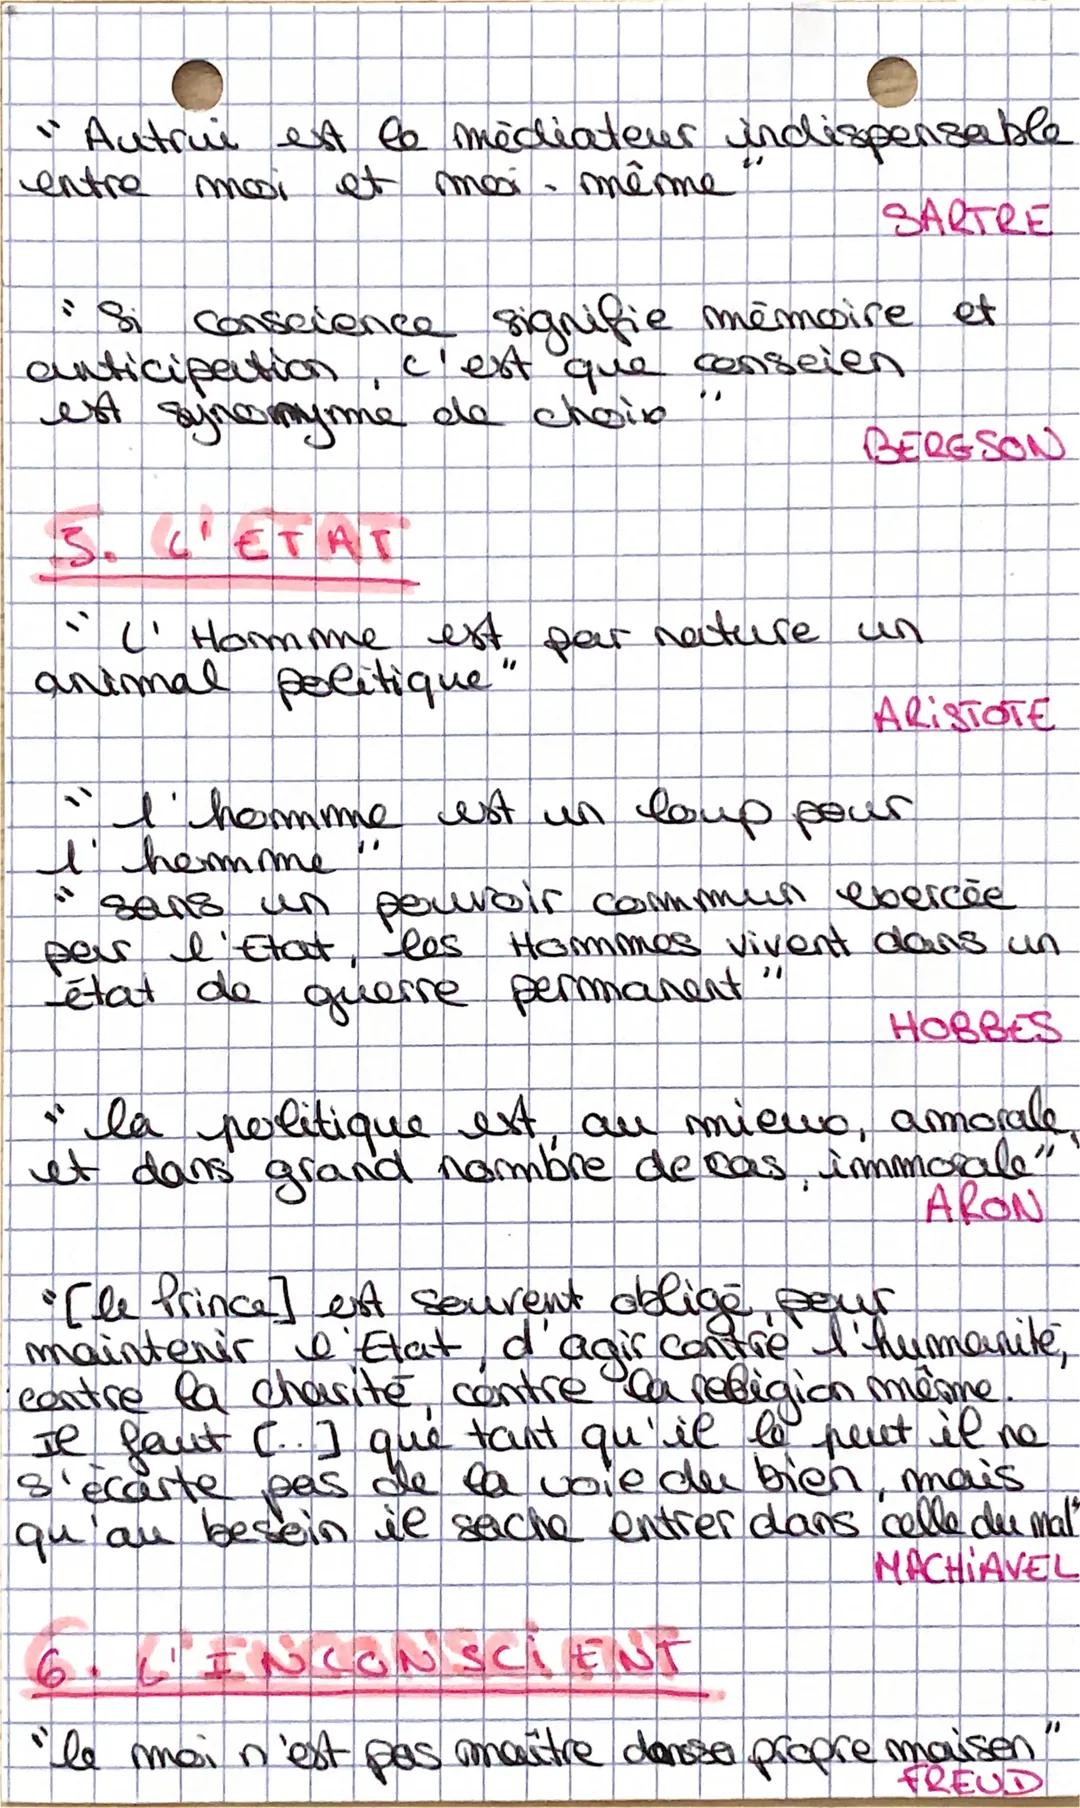 " Autrui est le médiateur indispensable
entre moi et moi-même "
SARTRE
" Si conscience signifie mémoire et
anticipation, c'est que conscien
est synonyme de choix "
BERGSON
5. L'ETAT
" L'Homme est par nature un
animal politique "
ARISTOTE
" l'homme est un loup pour
l'homme "
" sans un pouvoir commun exercée
par l'Etat, les Hommes vivent dans un
état de guerre permanent "
HOBBES
" la politique est, au mieux, amorale,
et dans grand nombre de cas, immorale "
ARON
" [le Prince] est souvent obligé, pour
maintenir l'Etat, d'agir contre l'humanité,
contre la charité, contre la religion même.
Il faut [...] que tant qu'il le peut il ne
s'écarte pas de la voie du bien, mais
qu'au besoin il sache entrer dans celle du mal "
MACHIAVEL
6. L'INCONSCIENT
" le moi n'est pas maître dans sa propre maison "
FREUD